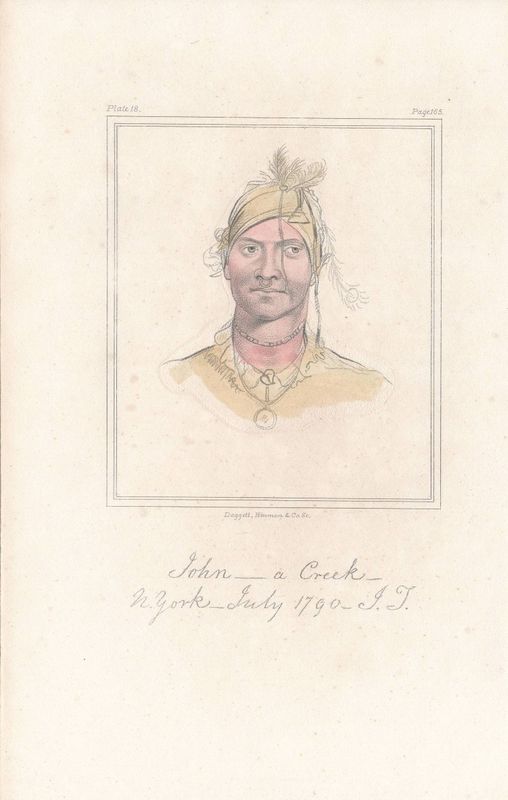 Plate 18.
Page 165.
Daggett, Hinman & Co. Sc.
John — a Creek —
N. York — July 1790 — J. T.